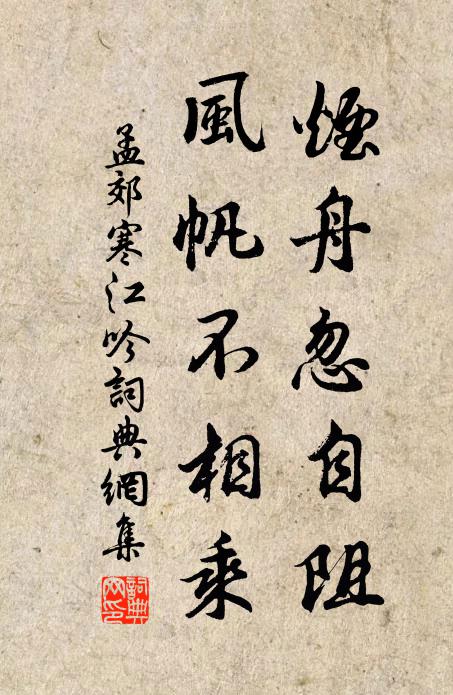 煙舟忽自阻
風帆不相乘
孟郊寒江吟詞典網集
詞典
网印